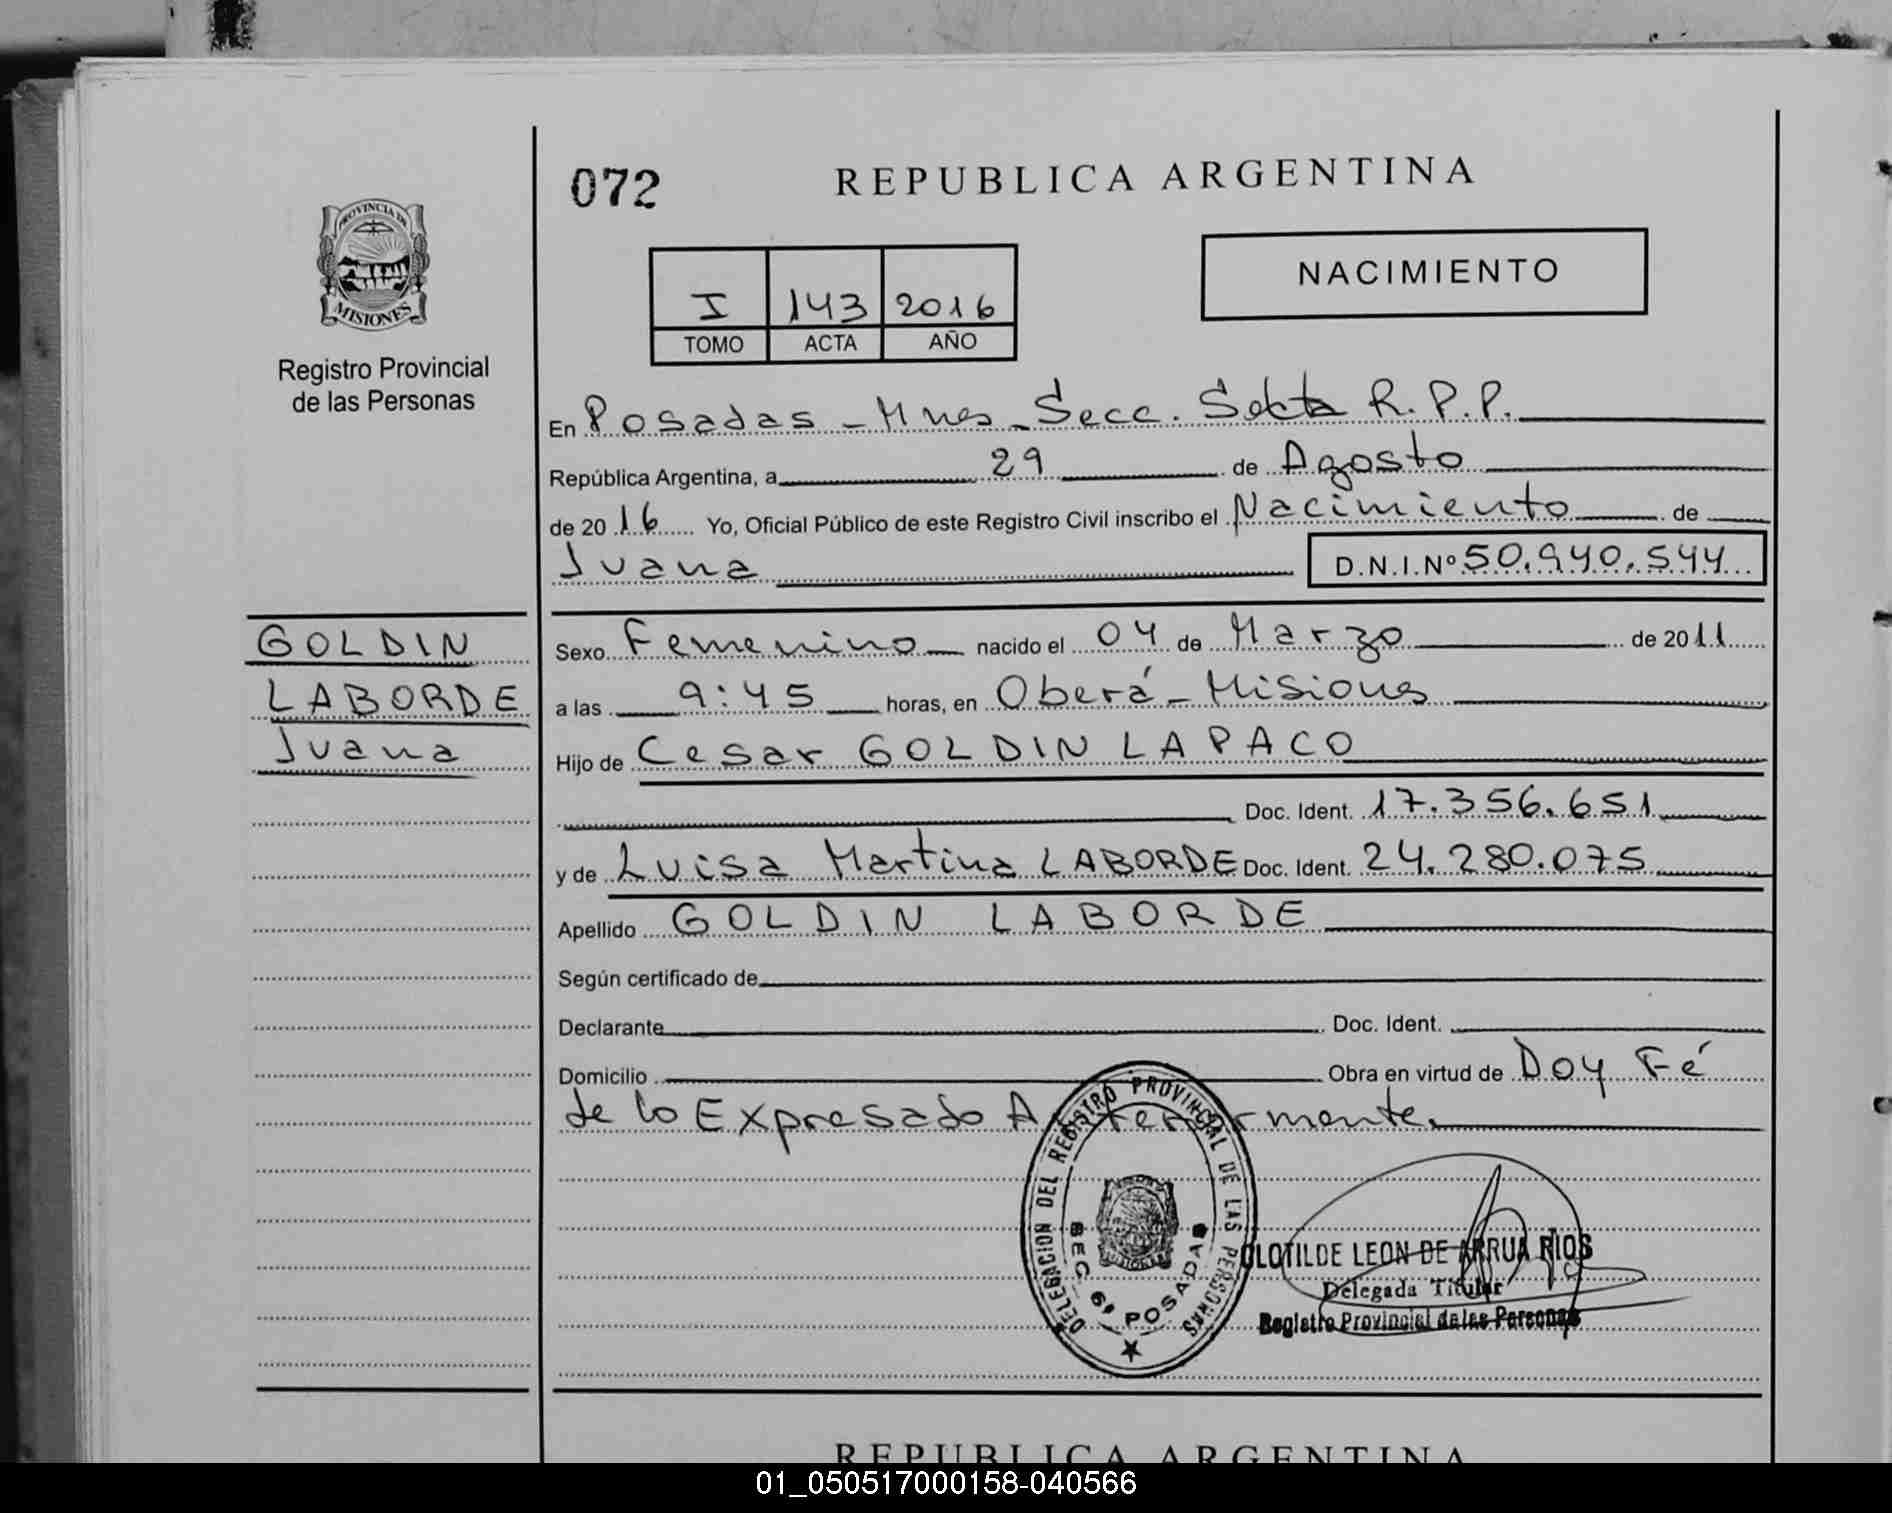 072
REPUBLICA ARGENTINA
PROVINCIA DE
MISIONES
Registro Provincial
de las Personas
I 143 2016
TOMO ACTA AÑO
NACIMIENTO
En Posadas - Mnes - Secc. Sexta R.P.P.
República Argentina, a 29 de Agosto
de 20 16 Yo, Oficial Público de este Registro Civil inscribo el Nacimiento de
Juana D.N.I.Nº 50.940.544
GOLDIN
LABORDE
Juana
Sexo Femenino nacido el 04 de Marzo de 2011
a las 9:45 horas, en Oberá - Misiones
Hijo de Cesar GOLDIN LAPACO
Doc. Ident. 17.356.651
y de Luisa Martina LABORDE Doc. Ident. 24.280.075
Apellido GOLDIN LABORDE
Según certificado de
Declarante Doc. Ident.
Domicilio Obra en virtud de Doy Fé
de lo Expresado Anteriormente.
DELEGACION DEL REGISTRO PROVINCIAL DE LAS PERSONAS
SEC. 6ª POSADAS
CLOTILDE LEON DE ARRUA RIOS
Delegada Titular
Registro Provincial de las Personas
REPUBLICA ARGENTINA
01_050517000158-040566